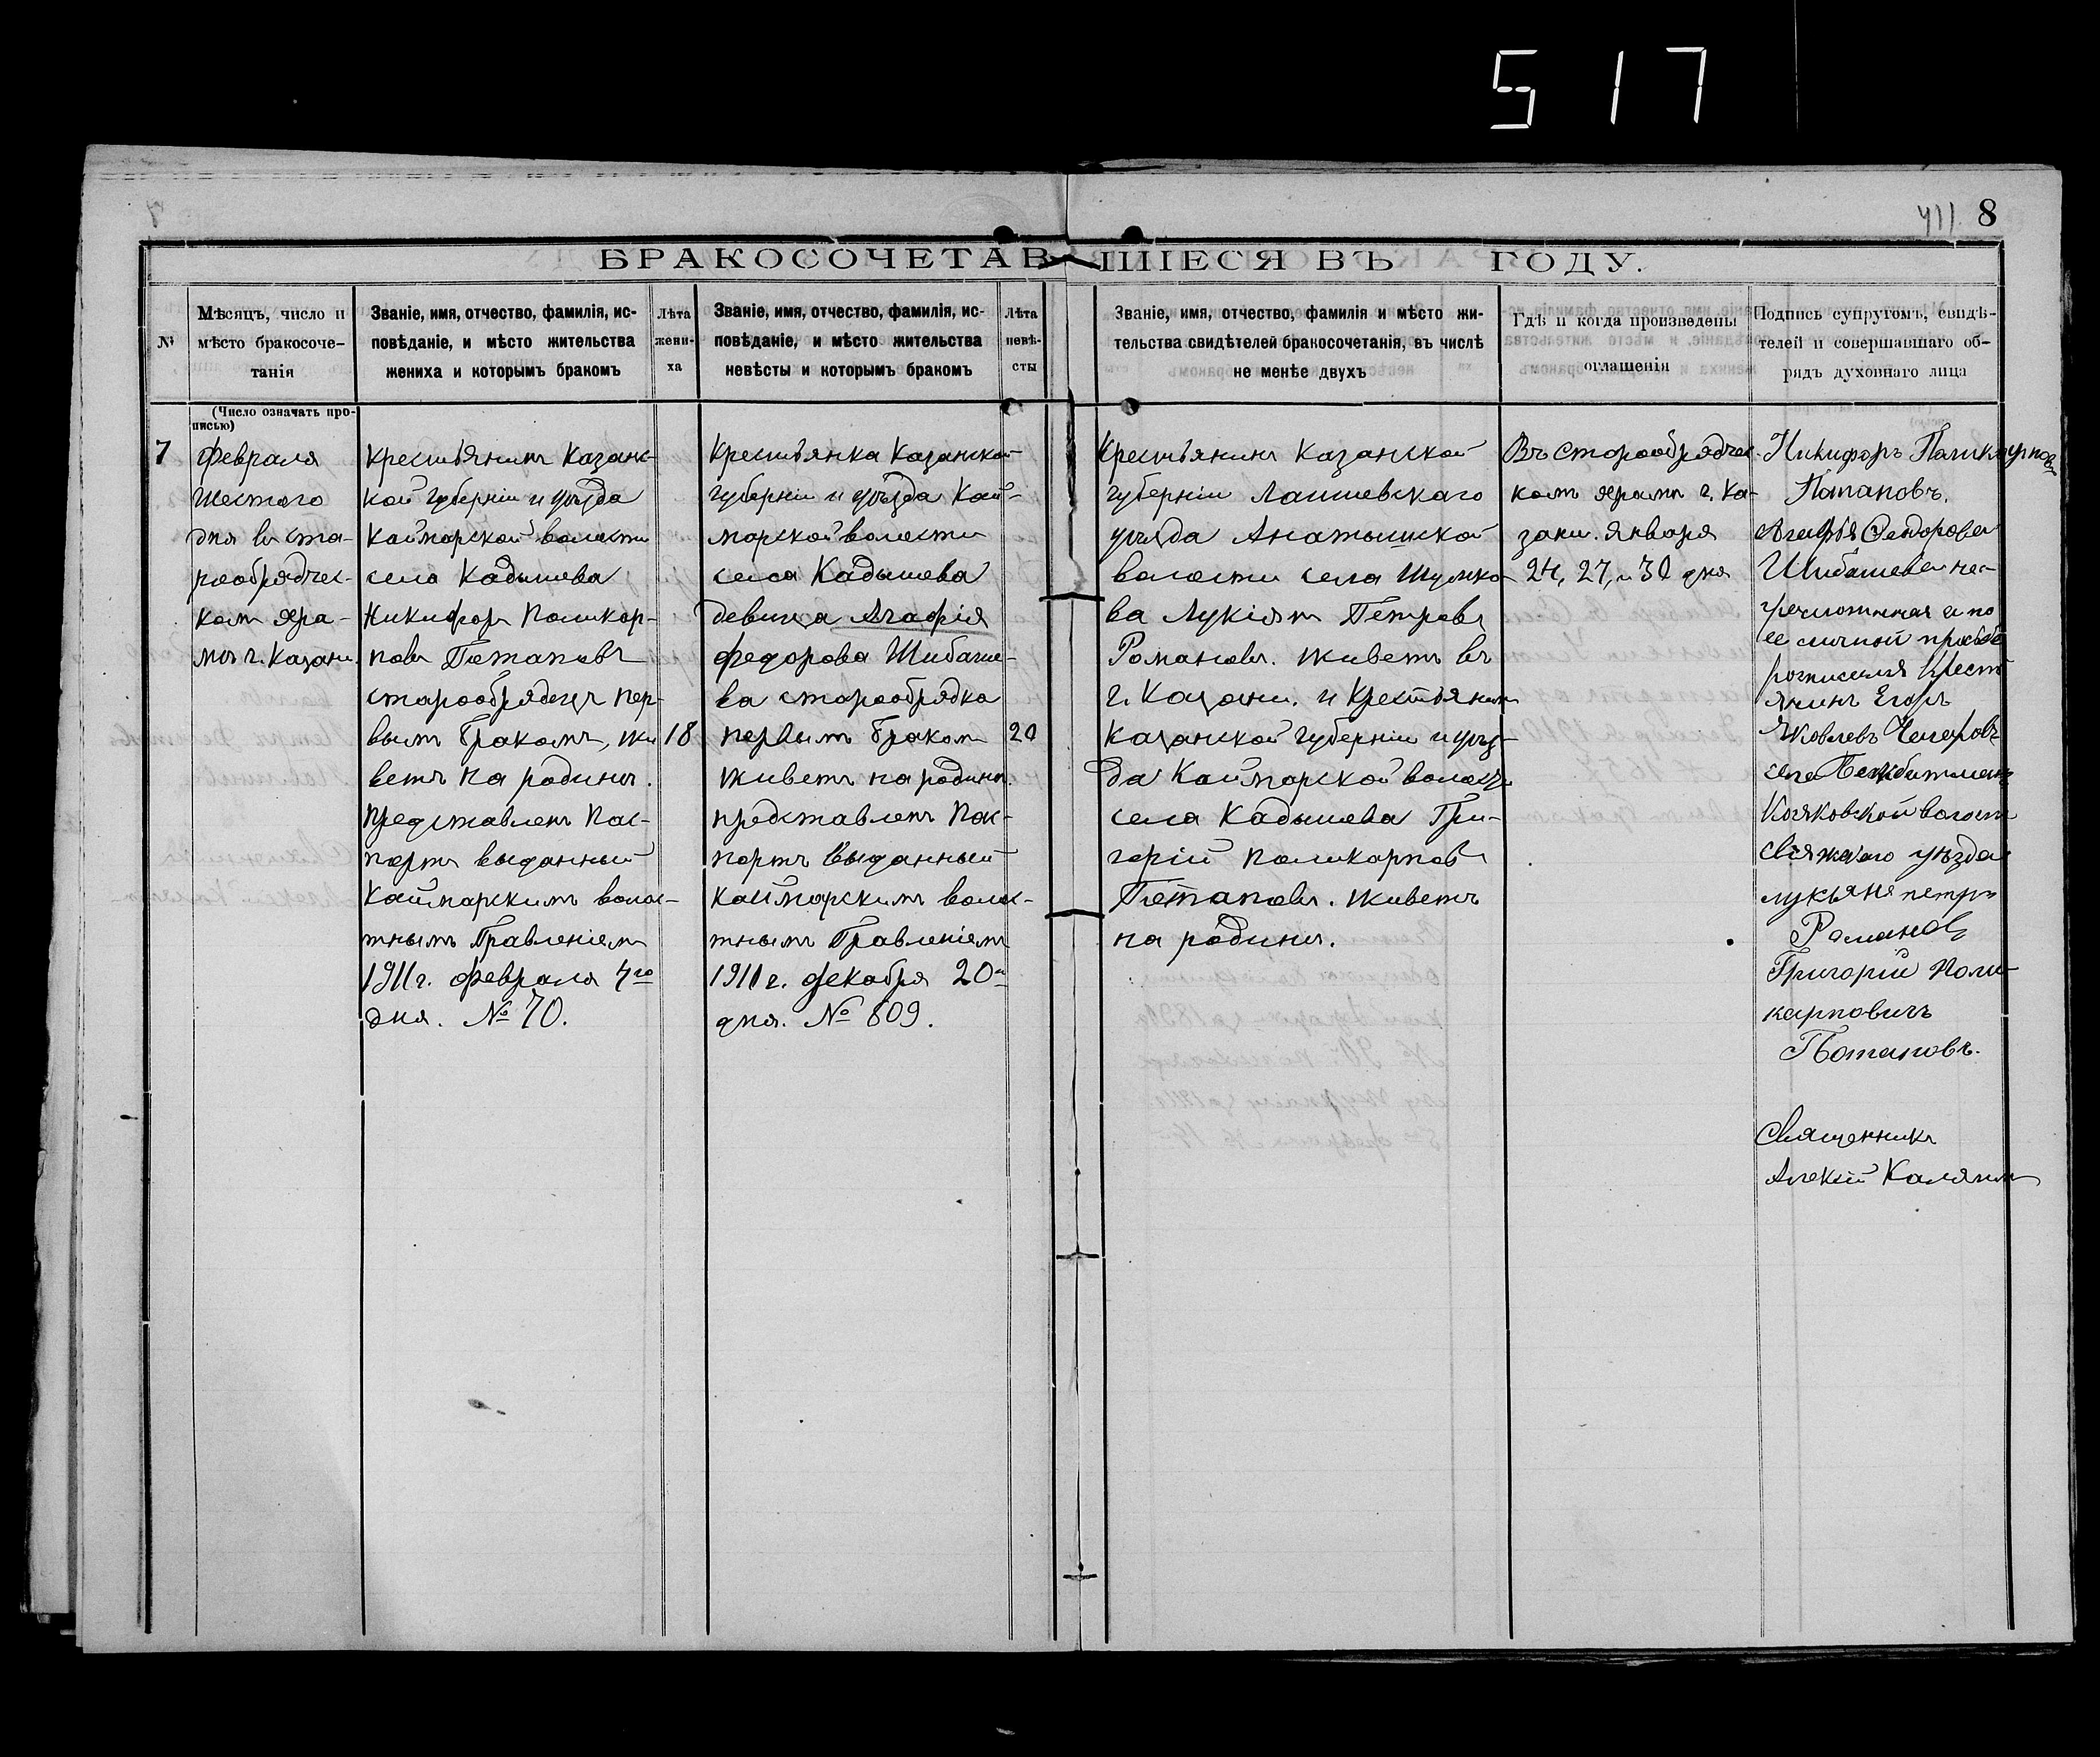 517
411 8
БРАКОСОЧЕТАВШІЕСЯ ВЪ ГОДУ.
№
Мѣсяцъ, число и
мѣсто бракосоче-
танія
Званіе, имя, отчество, фамилія, ис-
повѣданіе, и мѣсто жительства
жениха и которымъ бракомъ
Лѣта
жени-
ха
Званіе, имя, отчество, фамилія, ис-
повѣданіе, и мѣсто жительства
невѣсты и которымъ бракомъ
Лѣта
невѣ-
сты
Званіе, имя, отчество, фамилія и мѣсто жи-
тельства свидѣтелей бракосочетанія, въ числѣ
не менѣе двухъ
Гдѣ и когда произведены
оглашенія
Подпись супругомъ, свидѣ-
телей и совершавшаго об-
рядъ духовнаго лица
(Число означать про-
писью)
7
Февраля
Шестого
дня въ ста-
рообрядчес-
комъ хра-
мѣ г. Казани.
Крестьянинъ Казанс-
кой губерніи и уѣзда
Каймарской волости
села Кадышева
Никифоръ Поликар-
повъ Потаповъ
старообрядецъ пер-
вымъ бракомъ, жи
ветъ на родинѣ.
Представленъ Пас-
портъ выданный
Каймарскимъ волос-
тнымъ Правленіемъ
1911 г. февраля 4го
дня. № 70.
18
Крестьянка Казанской
губерніи и уѣзда Кай-
марской волости
села Кадышева
девица Агафія
Федорова Шибаше-
ва старообрядка
первымъ бракомъ
живетъ на родинѣ.
представленъ Пас-
портъ выданный
Каймарскимъ волос-
тнымъ Правленіемъ
1911 г. декабря 20го
дня. № 809.
20
Крестьянинъ Казанской
губерніи Лаишевскаго
уѣзда Анатышской
волости села Шумко-
ва Лукіянъ Петровъ
Романовъ. живетъ въ
г. Казани. и Крестьянинъ
Казанской губерніи и уѣз-
да Каймарской волости
села Кадышева Гри-
горій Поликарповъ
Потаповъ. живетъ
на родинѣ.
Въ Старообрядчес-
комъ храмѣ г. Ка-
зани. Января
24, 27, и 30 дня
Никифоръ Паликарповъ
Потаповъ.
Агафія Федорова
Шибашева не-
грамотная и по
ее личной просьбе
росписался Крестъ
янинъ Егоръ
Яковлевъ
села
волости
Свяжскаго уѣзда
лукьянъ петръ
Романов
Григорій Поли-
карповичъ
Потаповъ.
Священникъ
Алекій Калягинъ